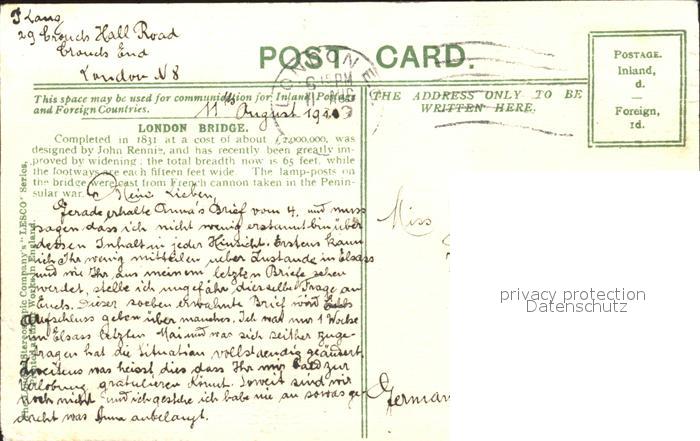 F Lang
29 Crouch Hall Road
Crouch End
London N8
POST CARD.
POSTAGE.
Inland,
d.
—
Foreign,
1d.
This space may be used for communication for Inland Postage
and Foreign Countries.
11th August 19
THE ADDRESS ONLY TO BE
WRITTEN HERE.
LONDON BRIDGE.
Completed in 1831 at a cost of about £2,000,000, was
designed by John Rennie, and has recently been greatly im-
proved by widening; the total breadth now is 65 feet, while
the footways are each fifteen feet wide. The lamp-posts on
the bridge were cast from French cannon taken in the Penin-
sular war.
Meine Lieben,
Gerade erhalte Anna's Brief vom 4. und muss
sagen dass ich nicht wenig erstaunt bin über
dessen Inhalt in jeder Hinsicht. Erstens kann
ich Ihr wenig mitteilen ueber Zustande in Elsass
und wie Ihr aus meinem letzten Briefe sehen
werdet, stelle ich ungefähr dieselbe Frage an
Euch. Dieser soeben erwähnte Brief wird
Aufschluss geben über manches. Ich war nur 1 Woche
im Elsass letzten Mai und was sich seither zuge-
tragen hat die Situation vollstaendig geäusert.
Zweitens was heisst dies dass Ihr mir bald zur
Verlobung gratulieren könnt. Soweit sind wir
noch nicht und ich gestehe ich habe nie an sowas ge-
dacht was Anna anbelangt.
Miss
German
Stereoscopic Company's "LESCO" Series.
Works in England.
privacy protection
Datenschutz